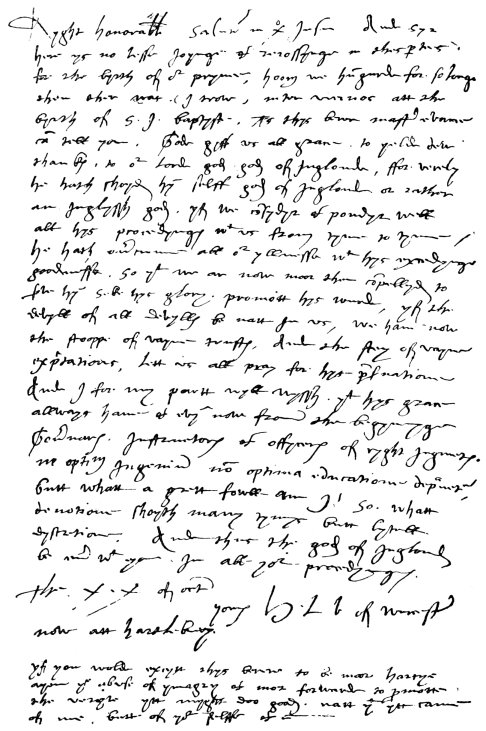 Ryght honorable Salutm in X Jesu And syr
here ys no lesse joynge et reiossynge in thes ptees
for the byrth of or prynce, hoom we hungurde for so longe
then ther was (I trow) inter vicinos att the
byrth of S. J. baptyste, As thys berer mastr evance
can tell you. Gode gyff us all grace to yeld dew
thanks to or Lord god god of Inglonde, ffor verely
he hath shoyd hym selff god of Inglond or rather
an Inglyssh god yf we consydyr et pondyr well
all hys procedyngs wt us from tyme to tyme /
he hath overcumme all or yllnesse wt hys excedynge
goodnesse, So yt we ar now moor then compellyd to
serve hym seke hys glory promott hys wurd, yf the
devyll of all devylls be natt in us, we have now
the stooppe of vayne trusts, And the stey of vayne
expectations, Lett us all pray for hys pservatione
And I for my partt wyll wyssh yt hys grace
allways have et evyn now from the begynynge
Governars, Instructors et offycers of ryght jugment.
ne optim Ingeniu non optima educatione depravetur
butt whatt a grett fowll am I! So. whatt
devotione shoyth many tymys butt lytell
dyscretione. And thus the god of Inglond
be ever wt you In all yor procedyngs.
the x x of octr
yours H L B of wurcestr
now att hartlebury.
yf you wold excytt thys berer to be moor hartye
ayen ye abuse of ymagry et mor forwarde to pmotte
the veryte ytt myght doo good. natt yt ytt came
of me, butt of yr selffe et c